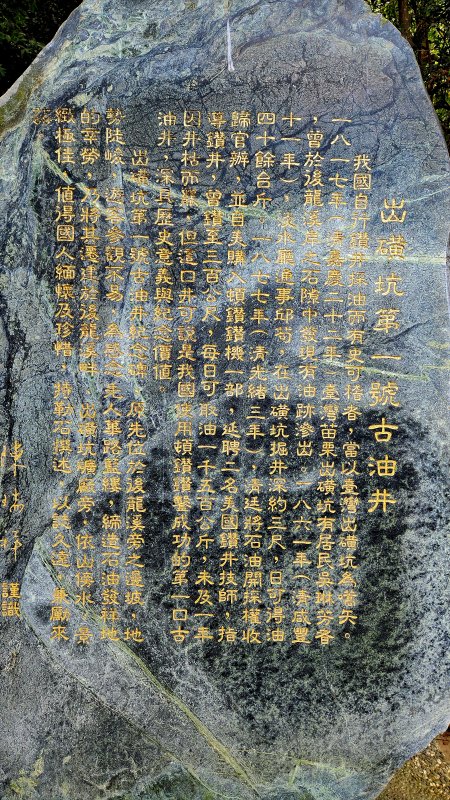 出磺坑第一號古油井
我國自行鑽井採油而有史可稽者，當以臺灣出磺坑為嚆矢。
一八一七年（清嘉慶二十二年）臺灣苗栗出磺坑有居民吳琳芳者
，曾於後龍溪岸之石隙中發現有油跡滲出。一八六一年（清咸豐
十一年），淡水廳通事邱苟，在出磺坑掘井深約三尺，日可得油
四十餘台斤。一八七七年（清光緒三年），清廷將石油開採權收
歸官辦，並自美購入頓鑽鑽機一部，延聘二名美國鑽井技師，指
導鑽井，曾鑽至三百公尺，每日可取油一千五百公斤，未及一年
因井枯而棄，但這口井可說是我國使用頓鑽鑽鑿成功的第一口古
油井，深具歷史意義與紀念價值
出磺坑第一號古油井紀念碑，原先位於後龍溪旁之邊坡，地
勢陡峻，遊客參觀不易，為感念先人篳路藍縷，締造石油發祥地
的辛勞，乃將其遷建於後龍溪畔，出磺坑礦廠旁，依山傍水，景
緻極佳，值得國人緬懷及珍惜，特勒石撰述，以誌久遠，兼勵來
茲
陳 瑞 祥 謹識